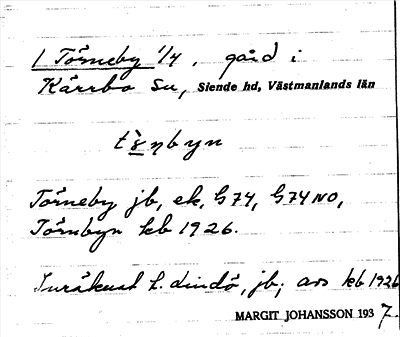 1 Törneby 1/4, gård i
Kärrbo Sn, Siende hd, Västmanlands län
Törneby jb, ek, G74, G74NO,
Törnbyn kb 1926.
L. Lindö, jb; avs kb 1926
MARGIT JOHANSSON 1937.